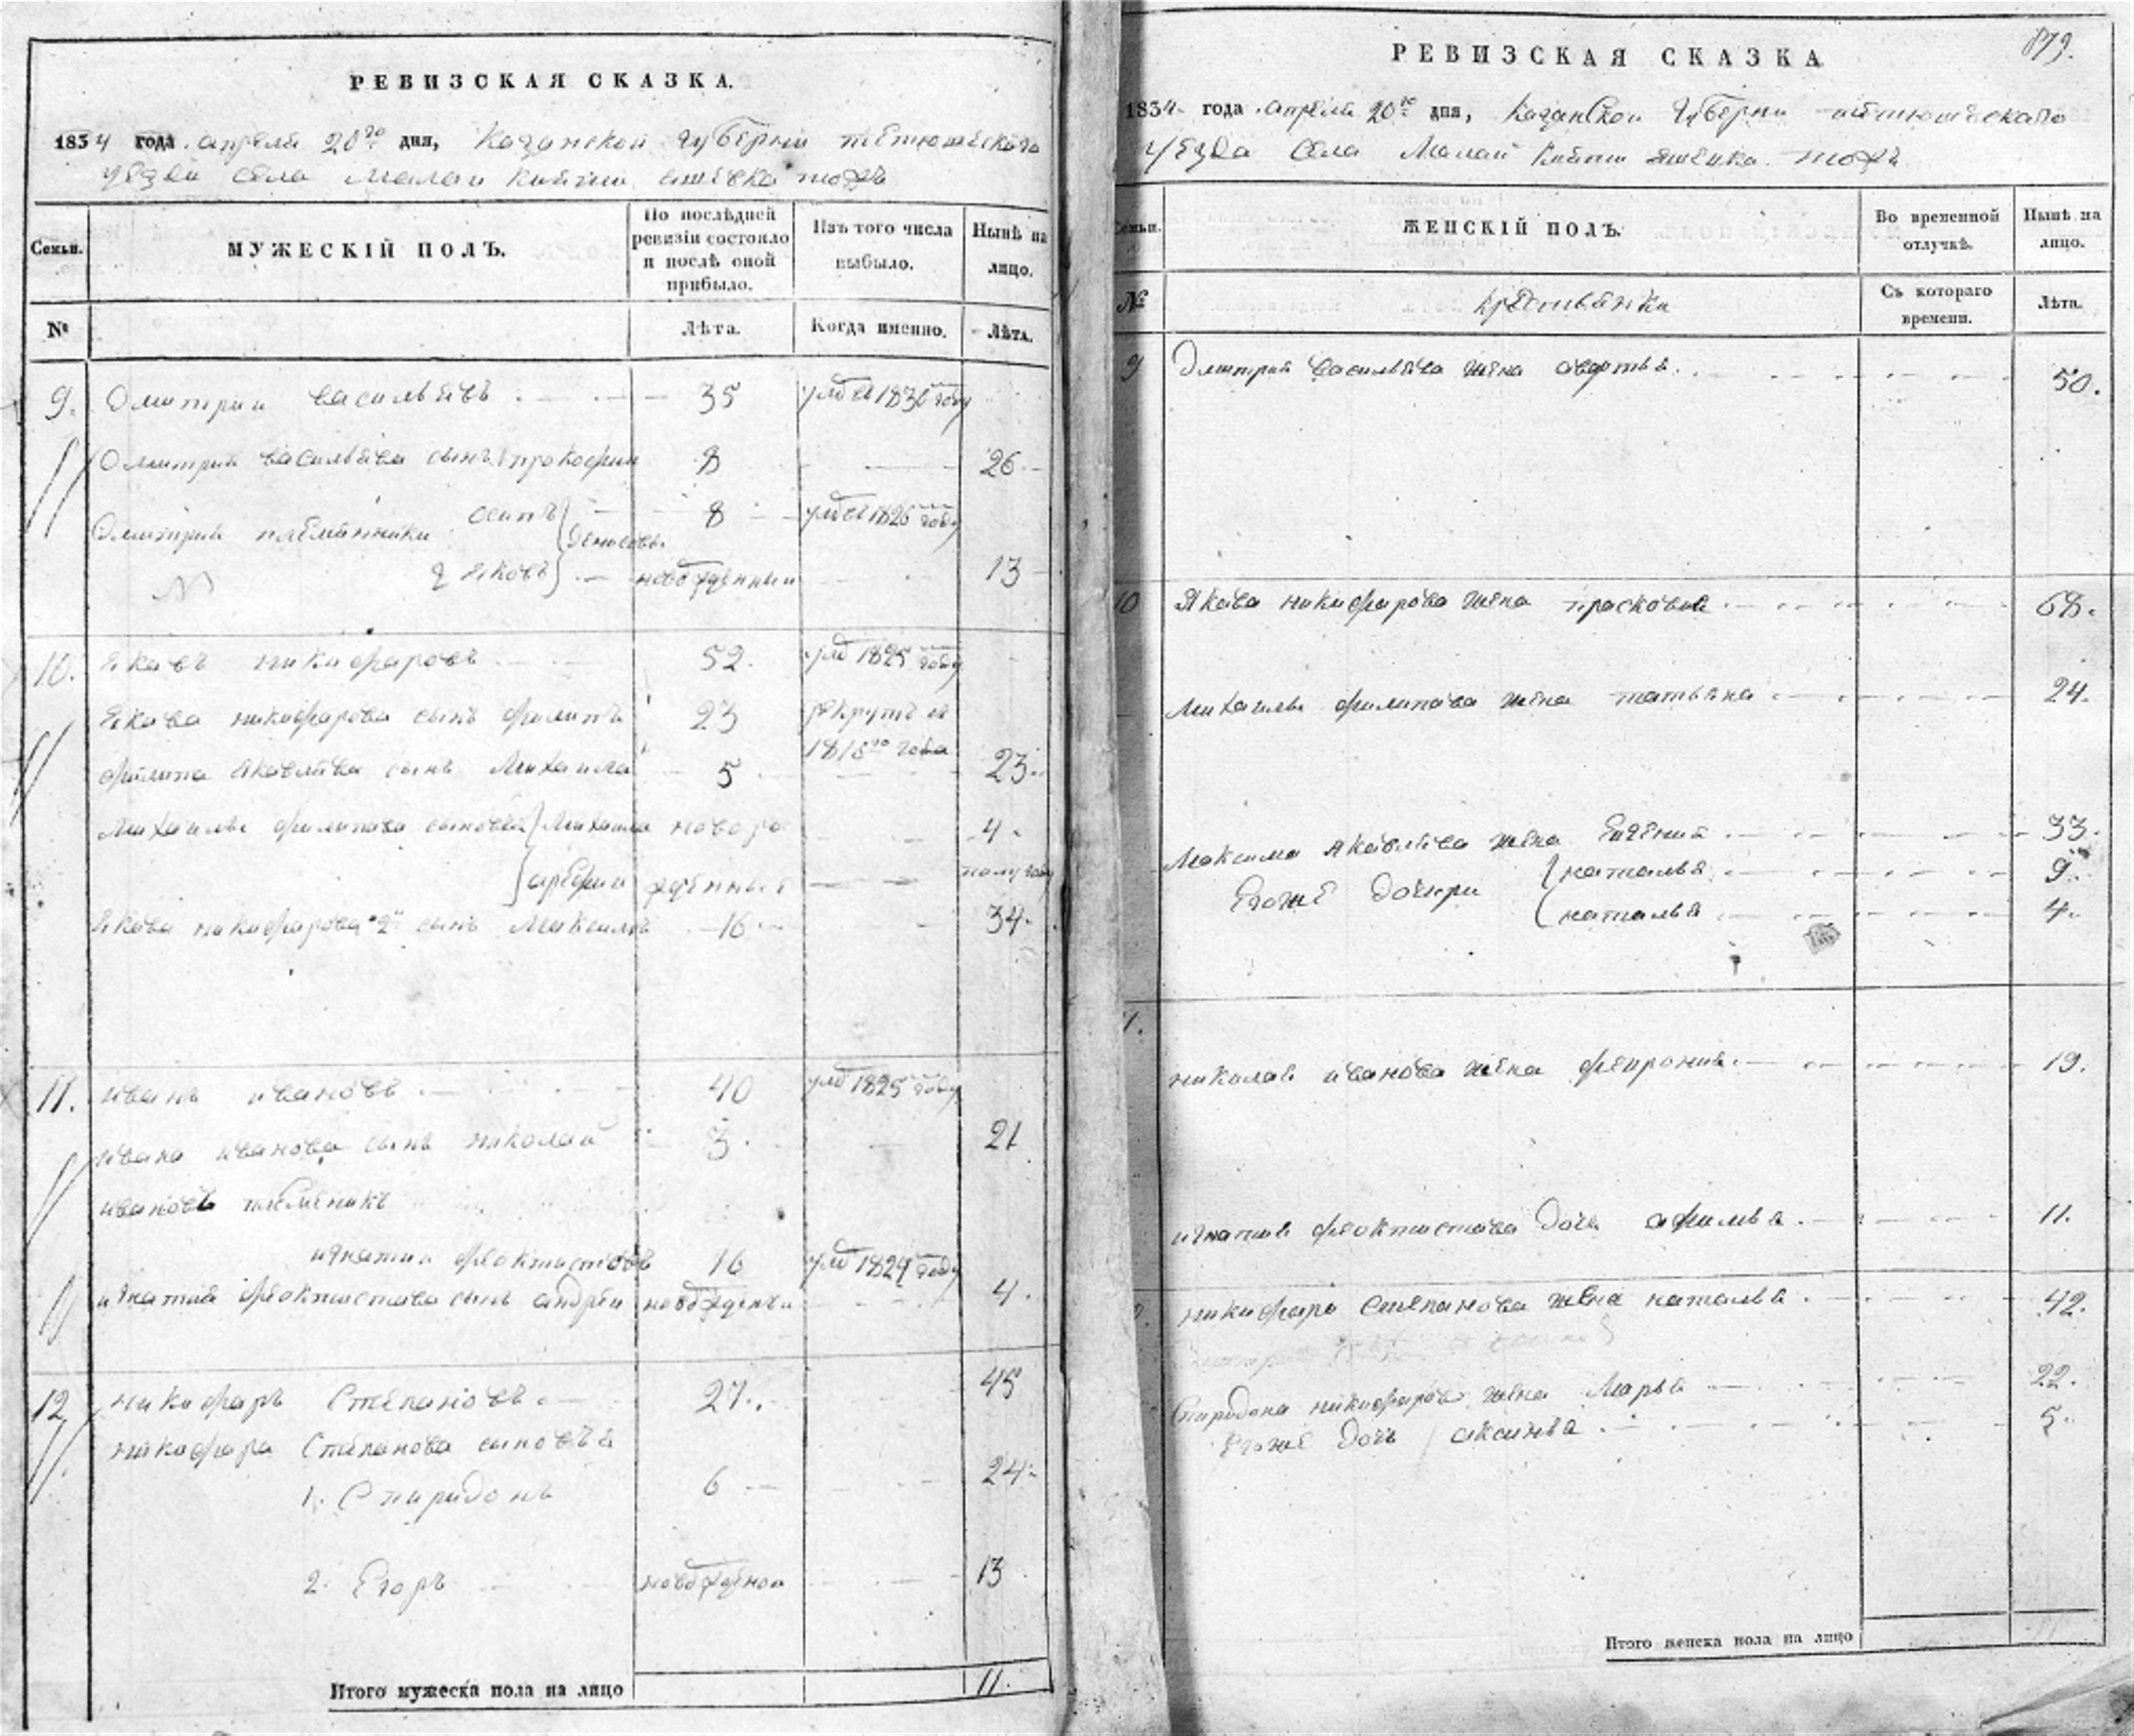 РЕВИЗСКАЯ СКАЗКА.
1834 года апреля 20го дня, Казанской губернии тетюшскаго
уезда села Малаи
Семьи.
МУЖЕСКІЙ ПОЛЪ.
По послѣдней ревизіи состояло и послѣ оной прибыло.
Изъ того числа выбыло.
Нынѣ на лицо.
№
Лѣта.
Когда именно.
Лѣта.
9. Дмитрий васильевъ 35 умб в 1830 году
Дмитрия васильева сынъ прокофии 8 26
Дмитрия племянники осипъ 8 умб в 1826 году
денисовы
2 яковъ новорожденныи 13
10. яковъ никифаровъ 52. умб 1825 году
якова никифарова сынъ филипъ 23 рекрутъ в
1818го года
филипа яковлева сынъ михаила 5 23
михаилы филипава сыновей михаила новоро 4
арефии жденные полугоду
якова никифарова 2й сынъ максимъ 16 34
11. иванъ ивановъ 40 умб 1825 году
ивана иванова сынъ николай 3 21
ивановъ племеникъ
игнатии феоктистовъ 16 умб 1829 году
игнатия феоктистова сынъ андреи новорожденыи 4
12 никифаръ Степановъ 27 45
никифара Степанова сыновья
1. Спиридонъ 6 24
2. Егоръ новорожденои 13
Итого мужеска пола на лицо 11.
879.
РЕВИЗСКАЯ СКАЗКА
1834 года апреля 20го дня, Казанской губернии тетюшскаго
уезда села Малаи
Семьи.
ЖЕНСКІЙ ПОЛЪ.
Во временной отлучкѣ.
Нынѣ на лицо.
№
крестьянки
Съ котораго времени.
Лѣта.
9 Дмитрия васильева жена авдотья 50.
10 Якова никифарова жена прасковья 68.
михаилы филипава жена татьяна 24.
максима яковлева жена Евгения 33
Егоже дочери наталья 9
наталья 4
11. николая иванова жена февронья 19.
игнатия феоктистова дочь афимья 11.
никифара Степанова жена наталья 42.
Спиридона никифарова жена марья 22.
Егоже дочь аксинья 5
Итого женска пола на лицо